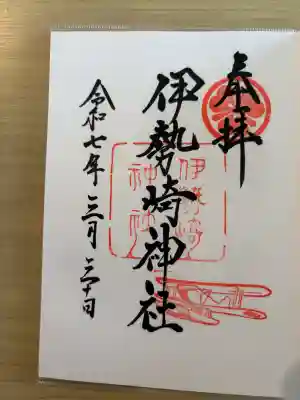 奉拝
伊勢崎神社
伊勢崎
神社
令和七年三月三十日